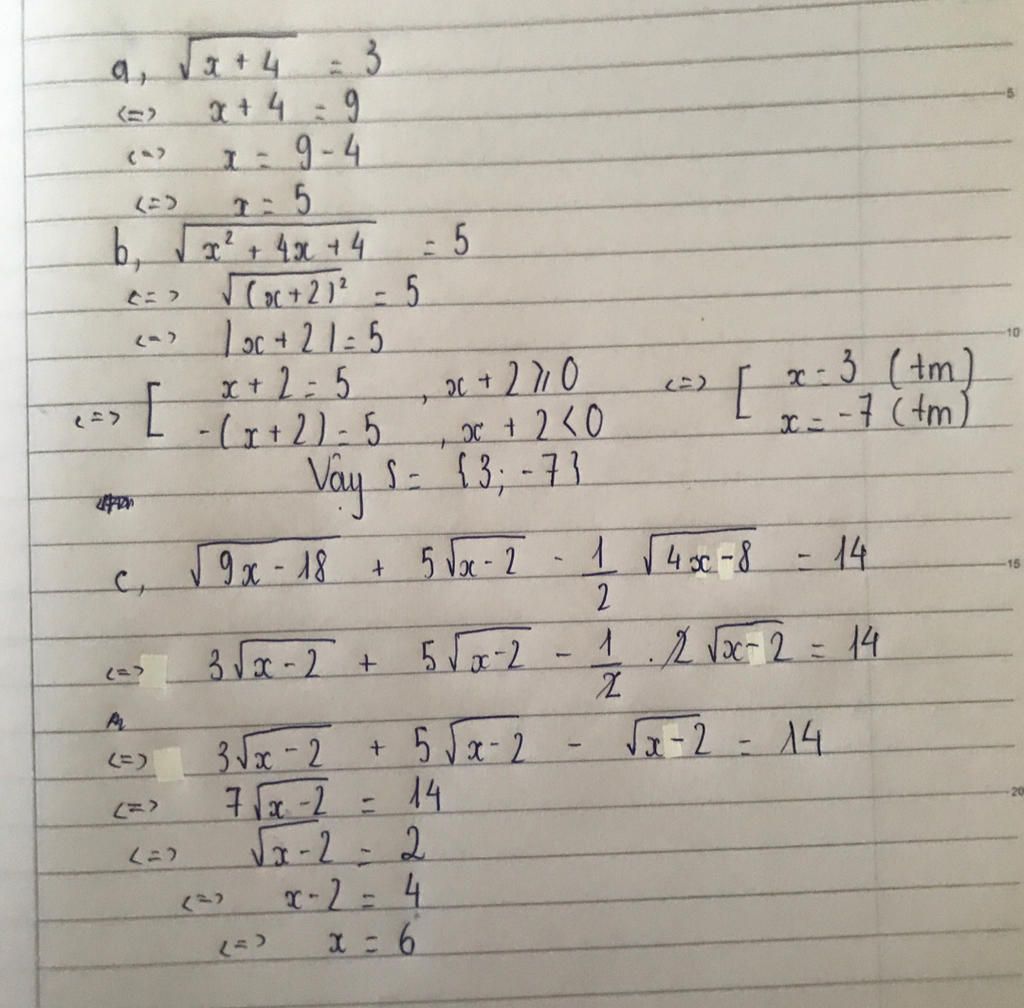 a, √(x + 4) = 3
<=> x + 4 = 9
<=> x = 9 - 4
<=> x = 5
b, √(x² + 4x + 4) = 5
<=> √((x+2)²) = 5
<=> |x + 2| = 5
<=> [ x + 2 = 5 , x + 2 ⩾ 0 <=> [ x = 3 (tm)
-(x + 2) = 5 , x + 2 < 0 x = -7 (tm)
Vậy S = {3; -7}
c, √(9x - 18) + 5√(x - 2) - 1/2 √(4x - 8) = 14
<=> 3√(x - 2) + 5√(x - 2) - 1/2 . 2√(x - 2) = 14
<=> 3√(x - 2) + 5√(x - 2) - √(x - 2) = 14
<=> 7√(x - 2) = 14
<=> √(x - 2) = 2
<=> x - 2 = 4
<=> x = 6
5
10
15
20